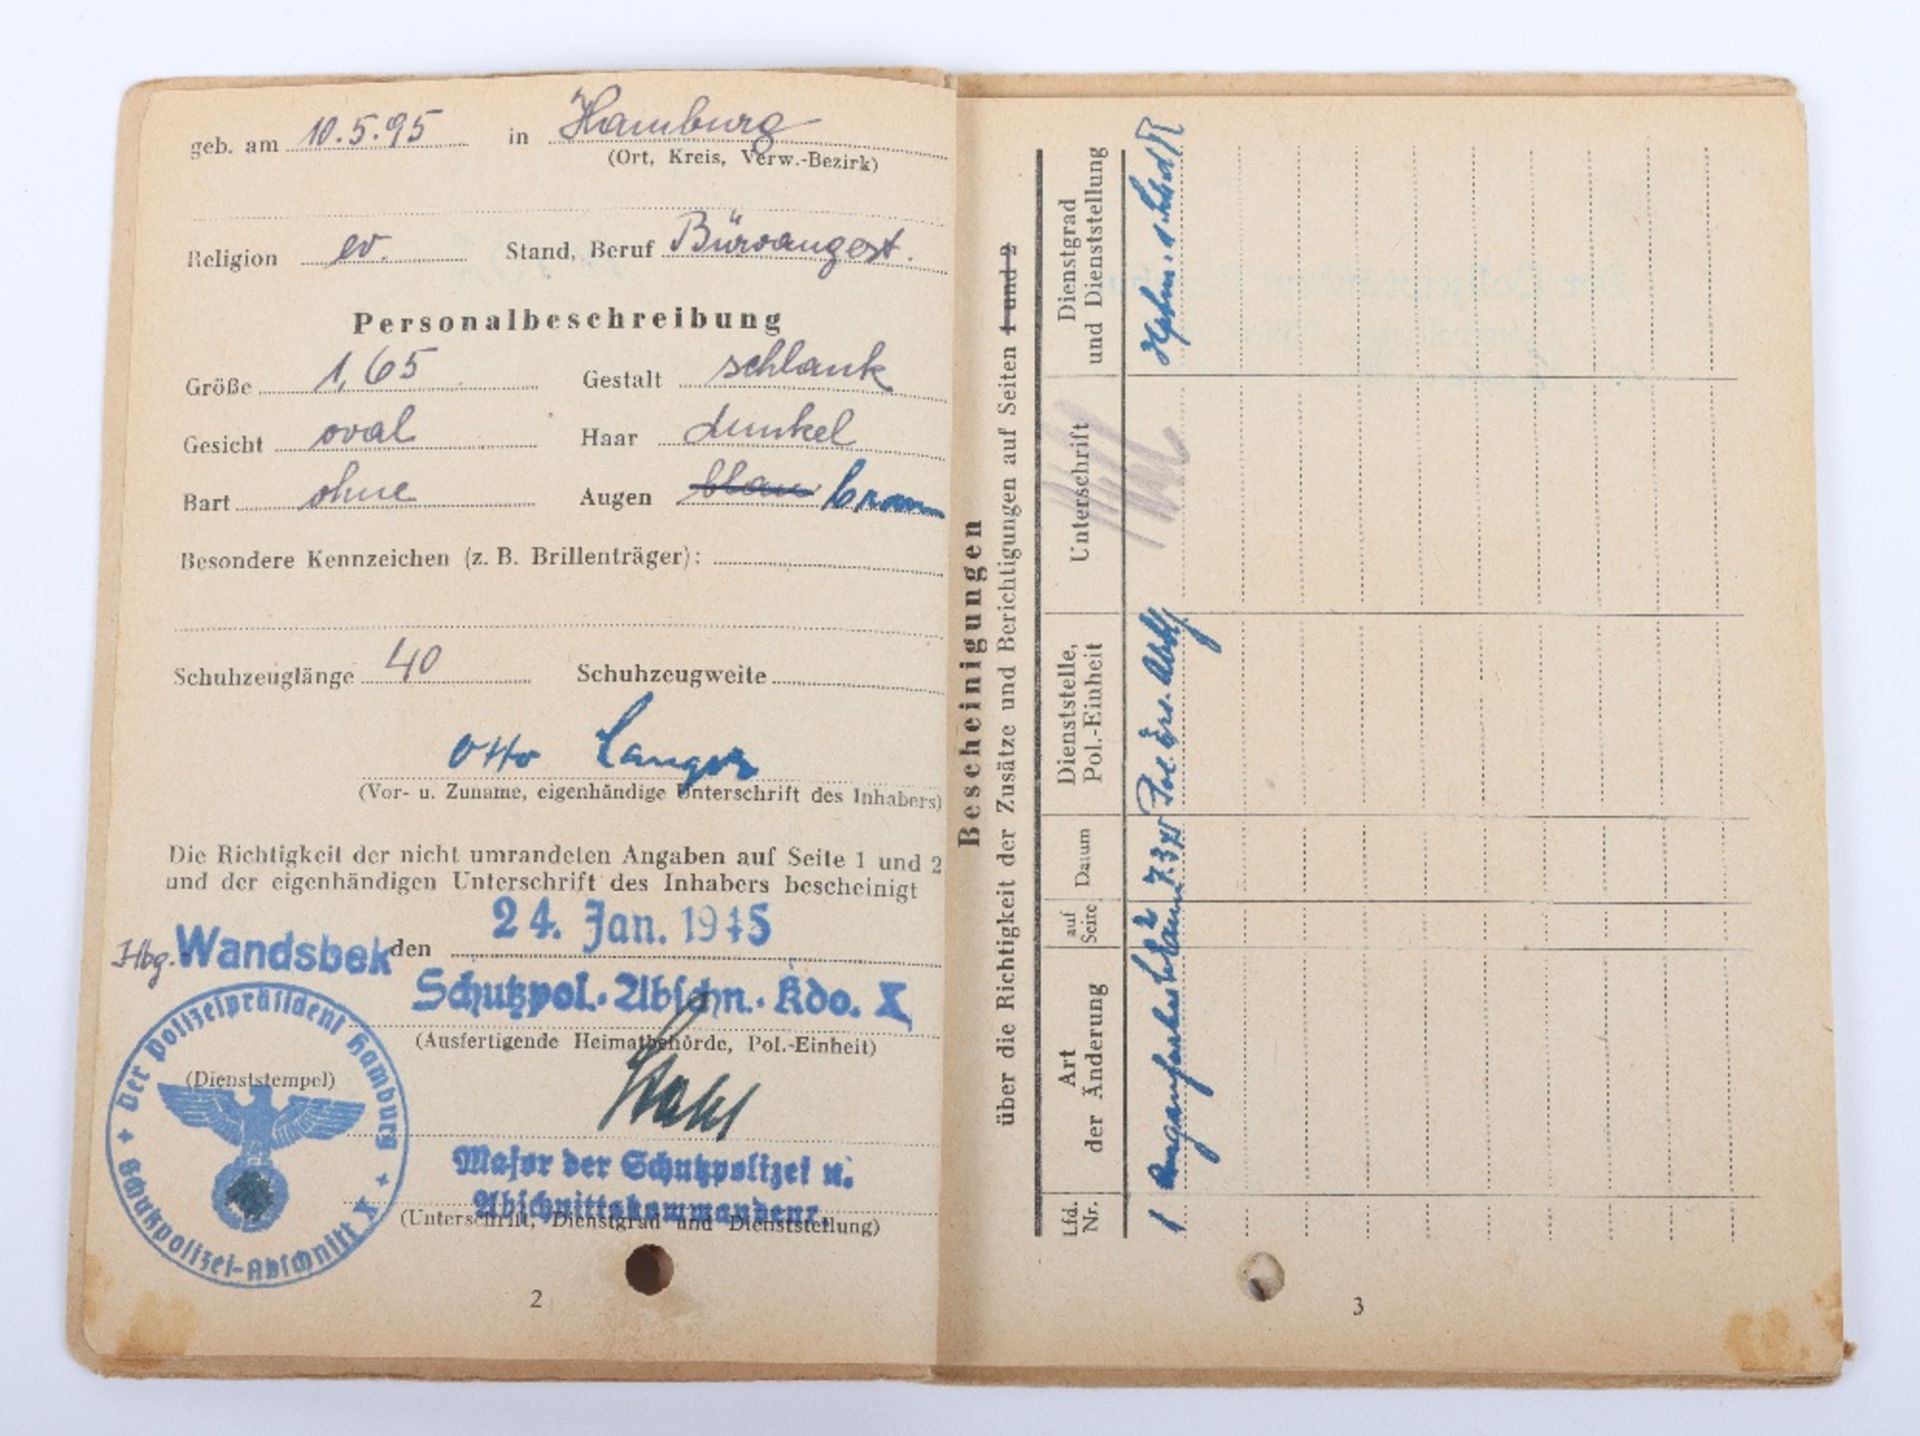 geb. am 10.5.95 in Hamburg
(Ort, Kreis, Verw.-Bezirk)
Religion ev. Stand, Beruf Büroangest.
Personalbeschreibung
Größe 1,65 Gestalt schlank
Gesicht oval Haar dunkel
Bart ohne Augen blau braun
Besondere Kennzeichen (z. B. Brillenträger):
Schuhzeuglänge 40 Schuhzeugweite
Otto Langer
(Vor- u. Zuname, eigenhändige Unterschrift des Inhabers)
Die Richtigkeit der nicht umrandeten Angaben auf Seite 1 und 2
und der eigenhändigen Unterschrift des Inhabers bescheinigt
Hbg. Wandsbek den 24. Jan. 1945
Schutzpol.-Abschn.-Kdo. X
(Ausfertigende Heimatbehörde, Pol.-Einheit)
(Dienststempel)
Der Polizeipräsident Hamburg
Schutzpolizei-Abschnitt X
Major der Schutzpolizei u.
Abschnittskommandeur
(Unterschrift, Dienstgrad und Dienststellung)
2
Bescheinigungen
über die Richtigkeit der Zusätze und Berichtigungen auf Seiten 1 und 2
Lfd. Nr.
Art der Änderung
auf Seite
Datum
Dienststelle, Pol.-Einheit
Unterschrift
Dienstgrad und Dienststellung
1 2 7.3.45
3